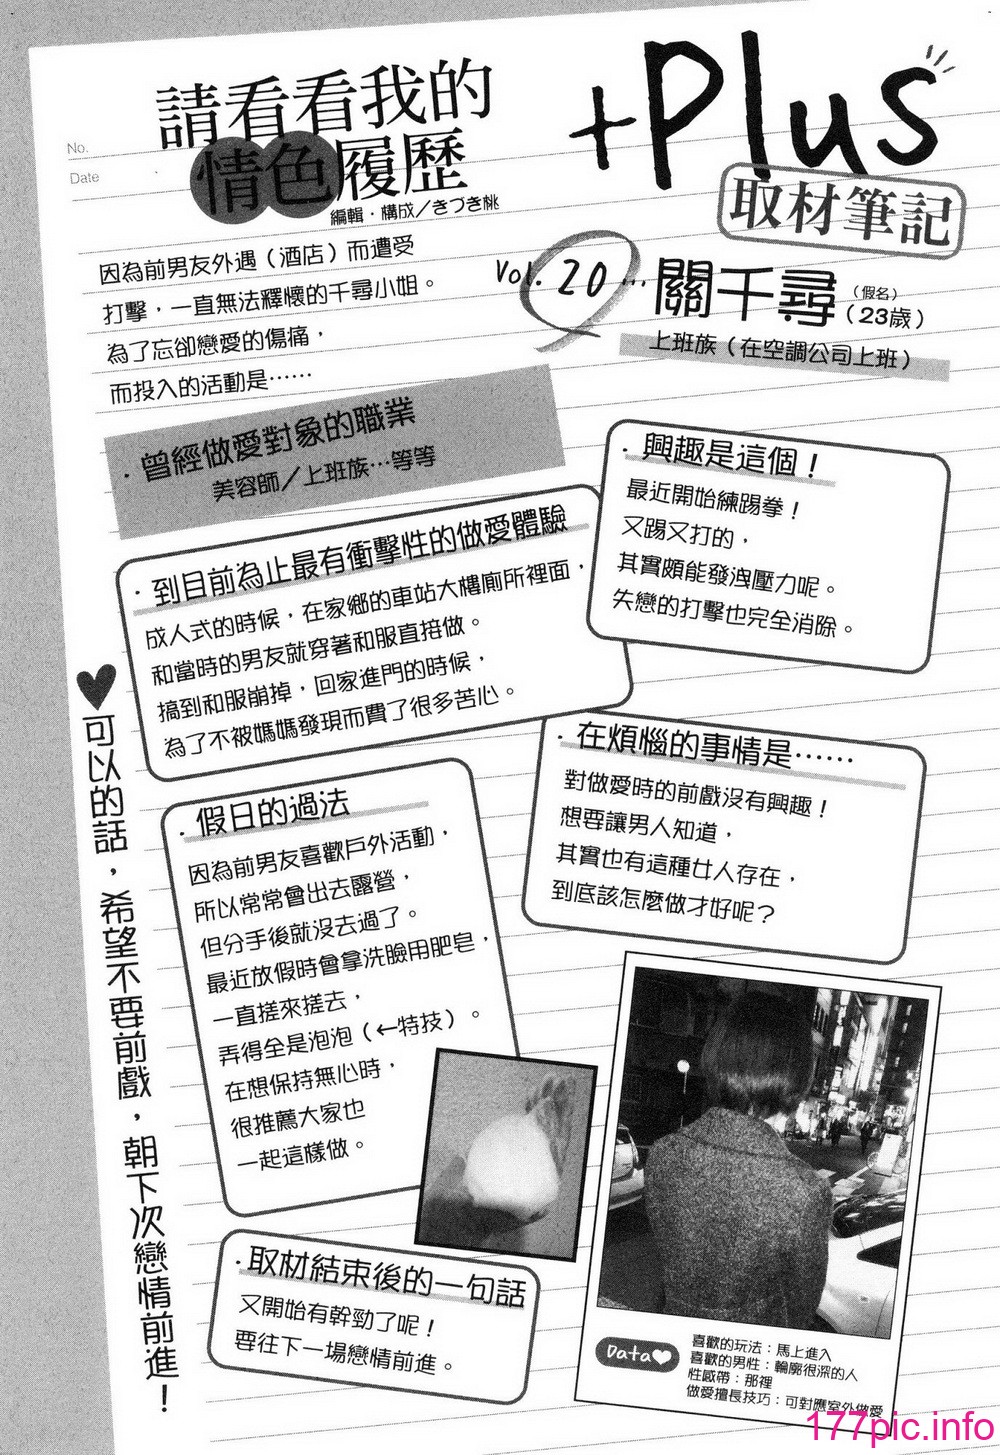 No.
Date
請看看我的
情色履歷
編輯・構成／きづき桃
+Plus
取材筆記
因為前男友外遇（酒店）而遭受
打擊，一直無法釋懷的千尋小姐。
為了忘卻戀愛的傷痛，
而投入的活動是……
Vol. 20…
關千尋
（假名）
（23歲）
上班族（在空調公司上班）
・曾經做愛對象的職業
美容師／上班族…等等
・興趣是這個！
最近開始練踢拳！
又踢又打的，
其實頗能發洩壓力呢。
失戀的打擊也完全消除。
・到目前為止最有衝擊性的做愛體驗
成人式的時候，在家鄉的車站大樓廁所裡面，
和當時的男友就穿著和服直接做。
搞到和服崩掉，回家進門的時候，
為了不被媽媽發現而費了很多苦心。
・在煩惱的事情是……
對做愛時的前戲沒有興趣！
想要讓男人知道，
其實也有這種女人存在，
到底該怎麼做才好呢？
・假日的過法
因為前男友喜歡戶外活動，
所以常常會出去露營，
但分手後就沒去過了。
最近放假時會拿洗臉用肥皂，
一直搓來搓去，
弄得全是泡泡（←特技）。
在想保持無心時，
很推薦大家也
一起這樣做。
・取材結束後的一句話
又開始有幹勁了呢！
要往下一場戀情前進。
♥可以的話，希望不要前戲，朝下次戀情前進！
Data♥
喜歡的玩法：馬上進入
喜歡的男性：輪廓很深的人
性感帶：那裡
做愛擅長技巧：可對應室外做愛
177pic.info